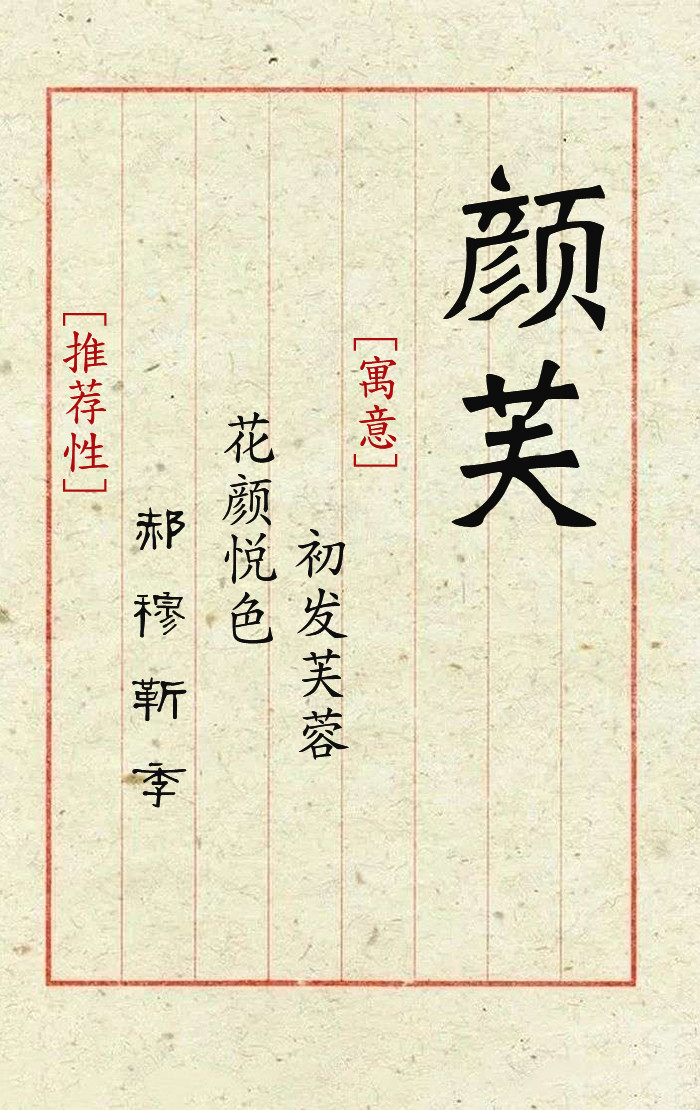 颜芙
[寓意]
初发芙蓉
花颜悦色
郝穆靳季
[推荐性]